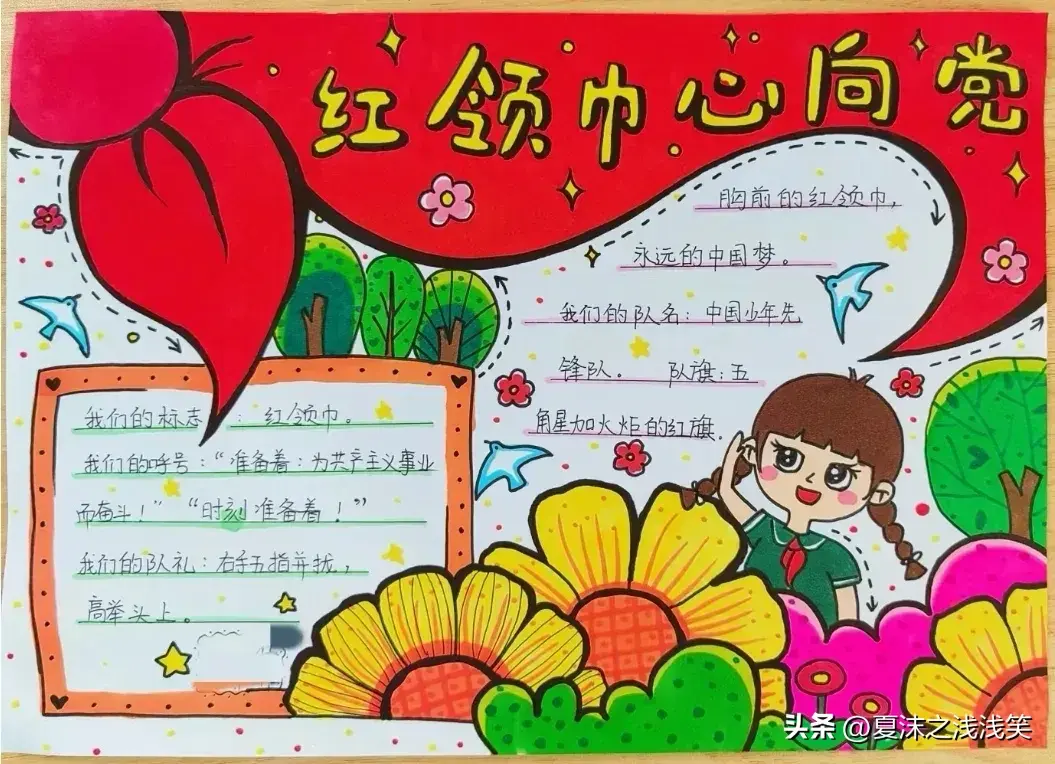 红领巾心向党
胸前的红领巾，
永远的中国梦。
我们的队名：中国少年先
锋队。 队旗：五
角星加火炬的红旗。
我们的标志：红领巾。
我们的呼号：“准备着：为共产主义事业
而奋斗！”“时刻准备着！”
我们的队礼：右手五指并拢，
高举头上。
头条 @夏沫之浅浅笑